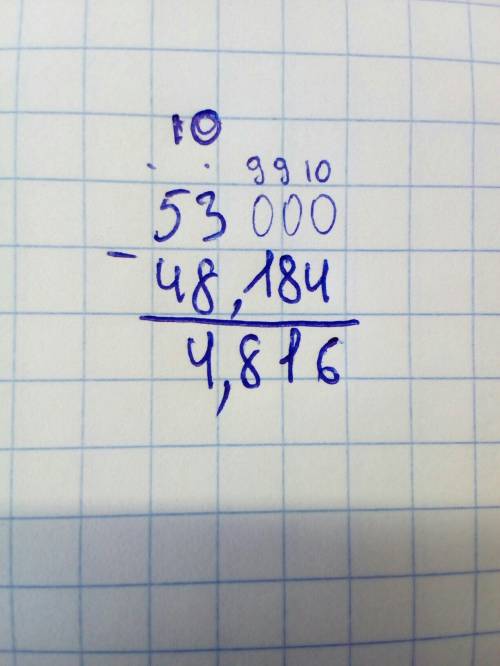 10
. . 9 9 10
53 000
-
48,184
4,816